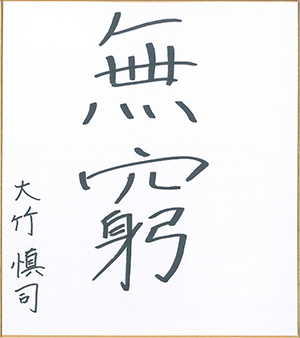 無窮
大竹慎司